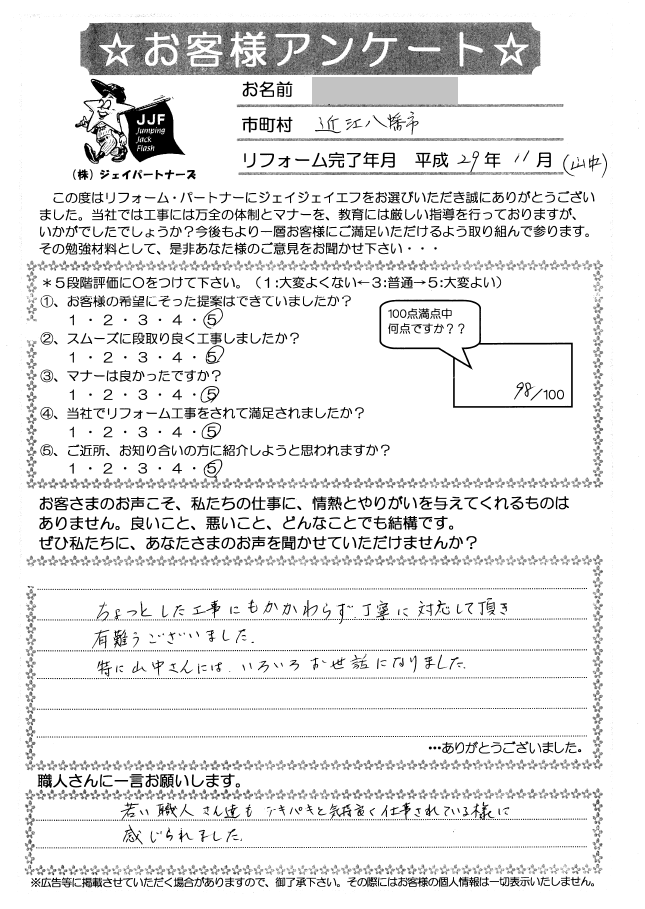 ☆お客様アンケート☆
JJF
Jumping
Jack
Flash
(株)ジェイパートナーズ
お名前
市町村 近江八幡市
リフォーム完了年月 平成 29年 11月 (山中)
この度はリフォーム・パートナーにジェイジェイエフをお選びいただき誠にありがとうござい
ました。当社では工事には万全の体制とマナーを、教育には厳しい指導を行っておりますが、
いかがでしたでしょうか?今後もより一層お客様にご満足いただけるよう取り組んで参ります。
その勉強材料として、是非あなた様のご意見をお聞かせ下さい・・・
*5段階評価に○をつけて下さい。(1:大変よくない←3:普通→5:大変よい)
①、お客様の希望にそった提案はできていましたか?
1・2・3・4・5
②、スムーズに段取り良く工事しましたか?
1・2・3・4・5
③、マナーは良かったですか?
1・2・3・4・5
④、当社でリフォーム工事をされて満足されましたか?
1・2・3・4・5
⑤、ご近所、お知り合いの方に紹介しようと思われますか?
1・2・3・4・5
100点満点中
何点ですか??
98/100
お客さまのお声こそ、私たちの仕事に、情熱とやりがいを与えてくれるものは
ありません。良いこと、悪いこと、どんなことでも結構です。
ぜひ私たちに、あなたさまのお声を聞かせていただけませんか?
ちょっとした工事にもかかわらず、丁寧に対応して頂き
有難うございました。
特に山中さんには、いろいろお世話になりました。
…ありがとうございました。
職人さんに一言お願いします。
若い職人さん達もテキパキと気持良く仕事されている様に
感じられました。
※広告等に掲載させていただく場合がありますので、御了承下さい。その際にはお客様の個人情報は一切表示いたしません。